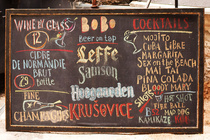 WINE BY GLASS
12
CIDRE
DE NORMANDIE
BRUT
29
FINE
CHAMPAGNES
BOBO
Beer on tap
Leffe
Samson
Hoegaarden
KRUSOVICE
COCKTAILS
MOJITO
CUBA LIBRE
MARGARITA
SEX ON THE BEACH
MAI TAI
PINA COLADA
BLOODY MARY
MAD DOG
KAMIKAZE